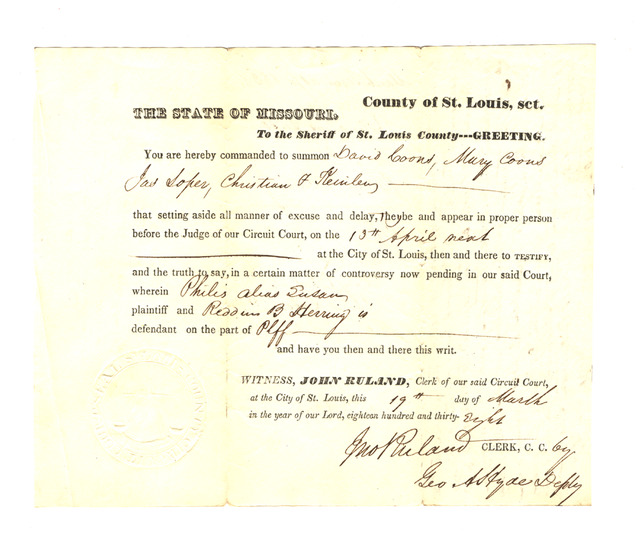 County of St. Louis, sct.
THE STATE OF MISSOURI.
To the Sheriff of St. Louis County---GREETING.
You are hereby commanded to summon David Coons, Mary Coons
Jas Soper, Christian F Keinlen
that setting aside all manner of excuse and delay, They be and appear in proper person
before the Judge of our Circuit Court, on the 13th April next
at the City of St. Louis, then and there to TESTIFY,
and the truth to say, in a certain matter of controversy now pending in our said Court,
wherein Philis alias Susan
plaintiff and Reddin B Herring is
defendant on the part of Plff
and have you then and there this writ.
WITNESS, JOHN RULAND, Clerk of our said Circuit Court,
at the City of St. Louis, this 19th day of March
in the year of our Lord, eighteen hundred and thirty-Eight
Jno Ruland CLERK, C. C. by
Geo A Hyde Depty